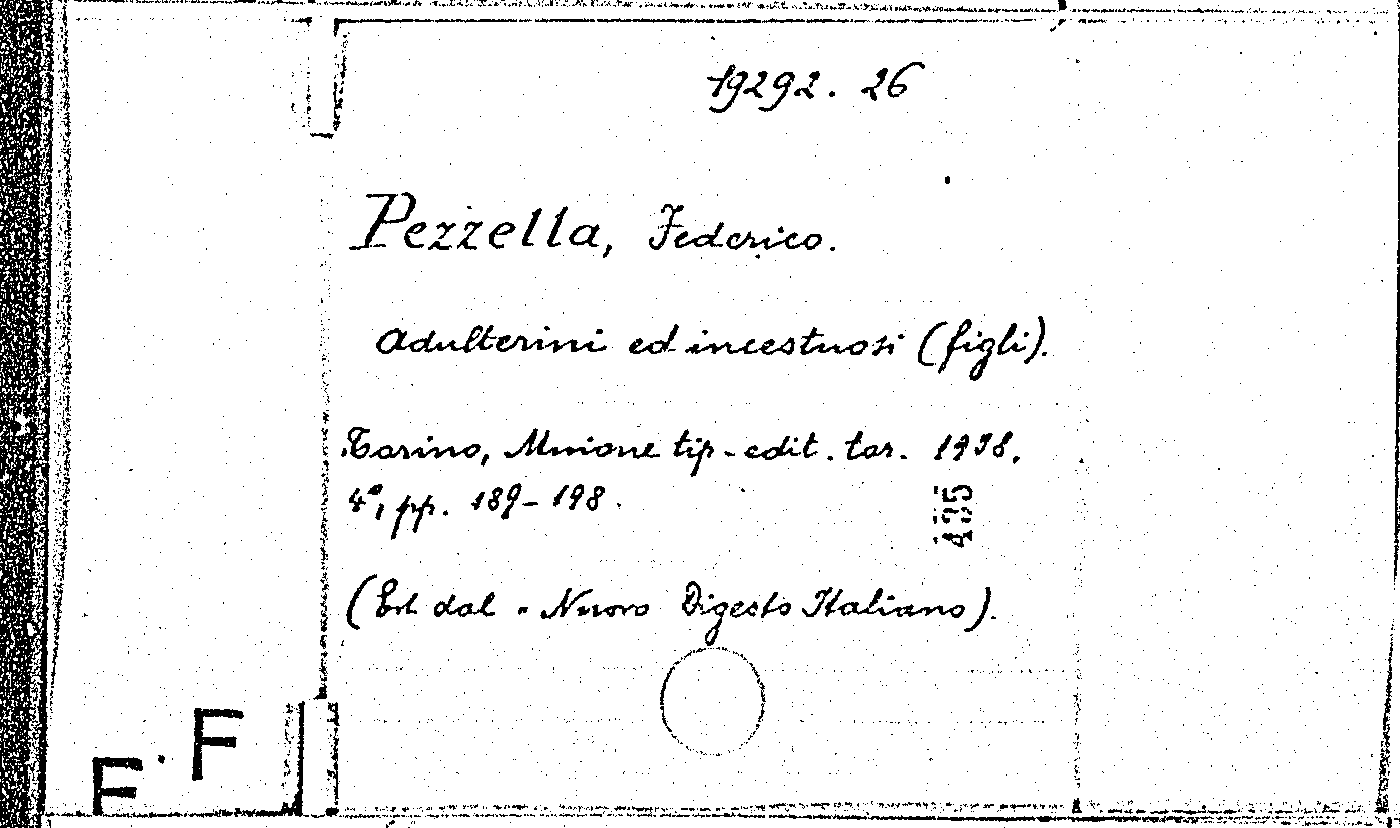 19292. 26
Pezzella, Federico.
Adulterini ed incestuosi (figli).
Torino, Unione tip-edit. tor. 1938.
4°, pp. 189-198.
435
(Est. dal "Nuovo Digesto Italiano).
F
F